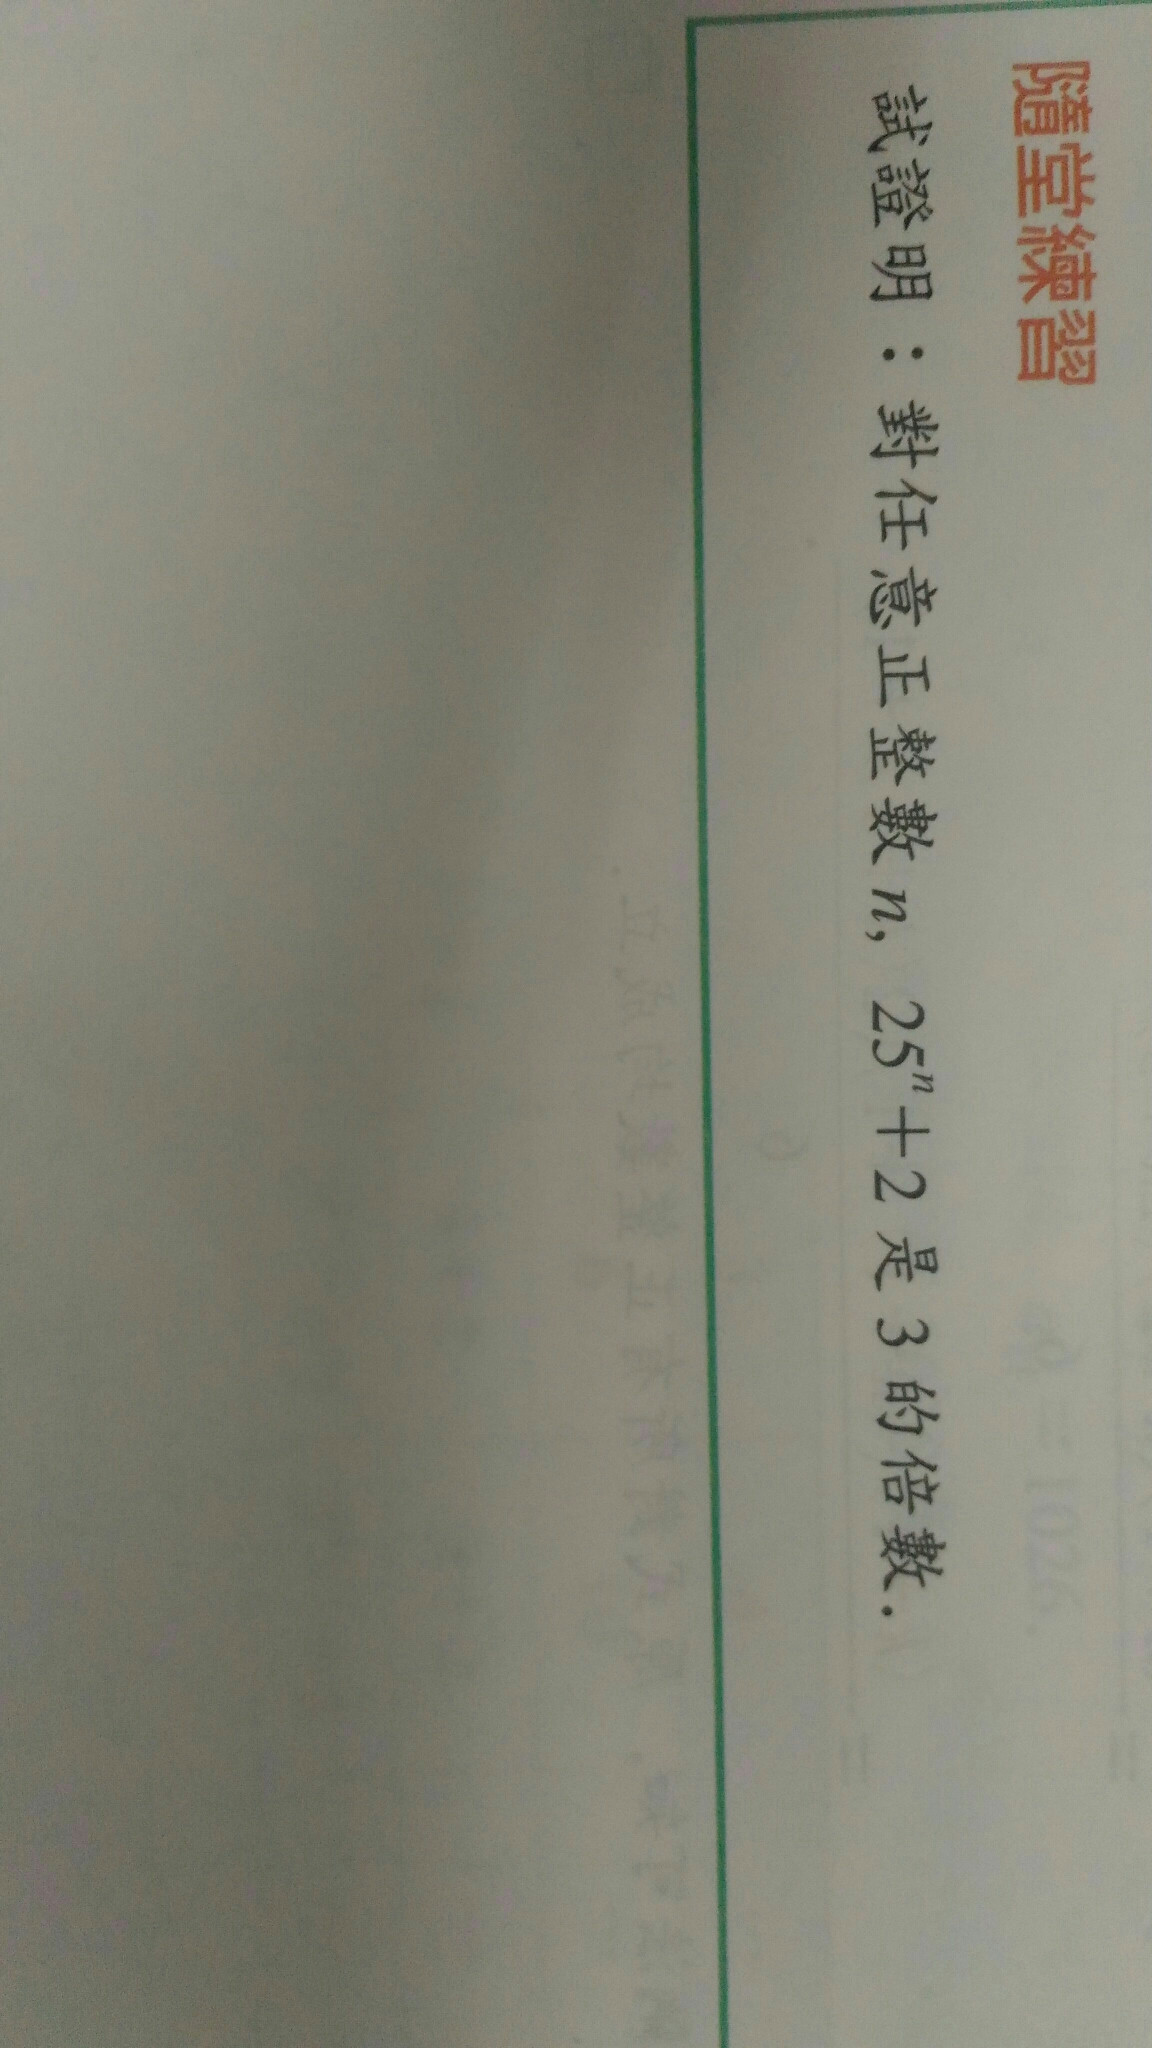 隨堂練習
試證明：對任意正整數n, 25ⁿ+2 是 3 的倍數.